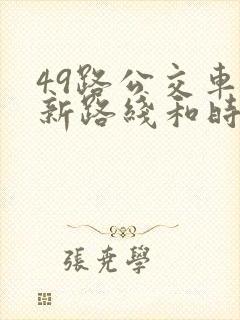 49路公交車
新路綫和時
張堯學